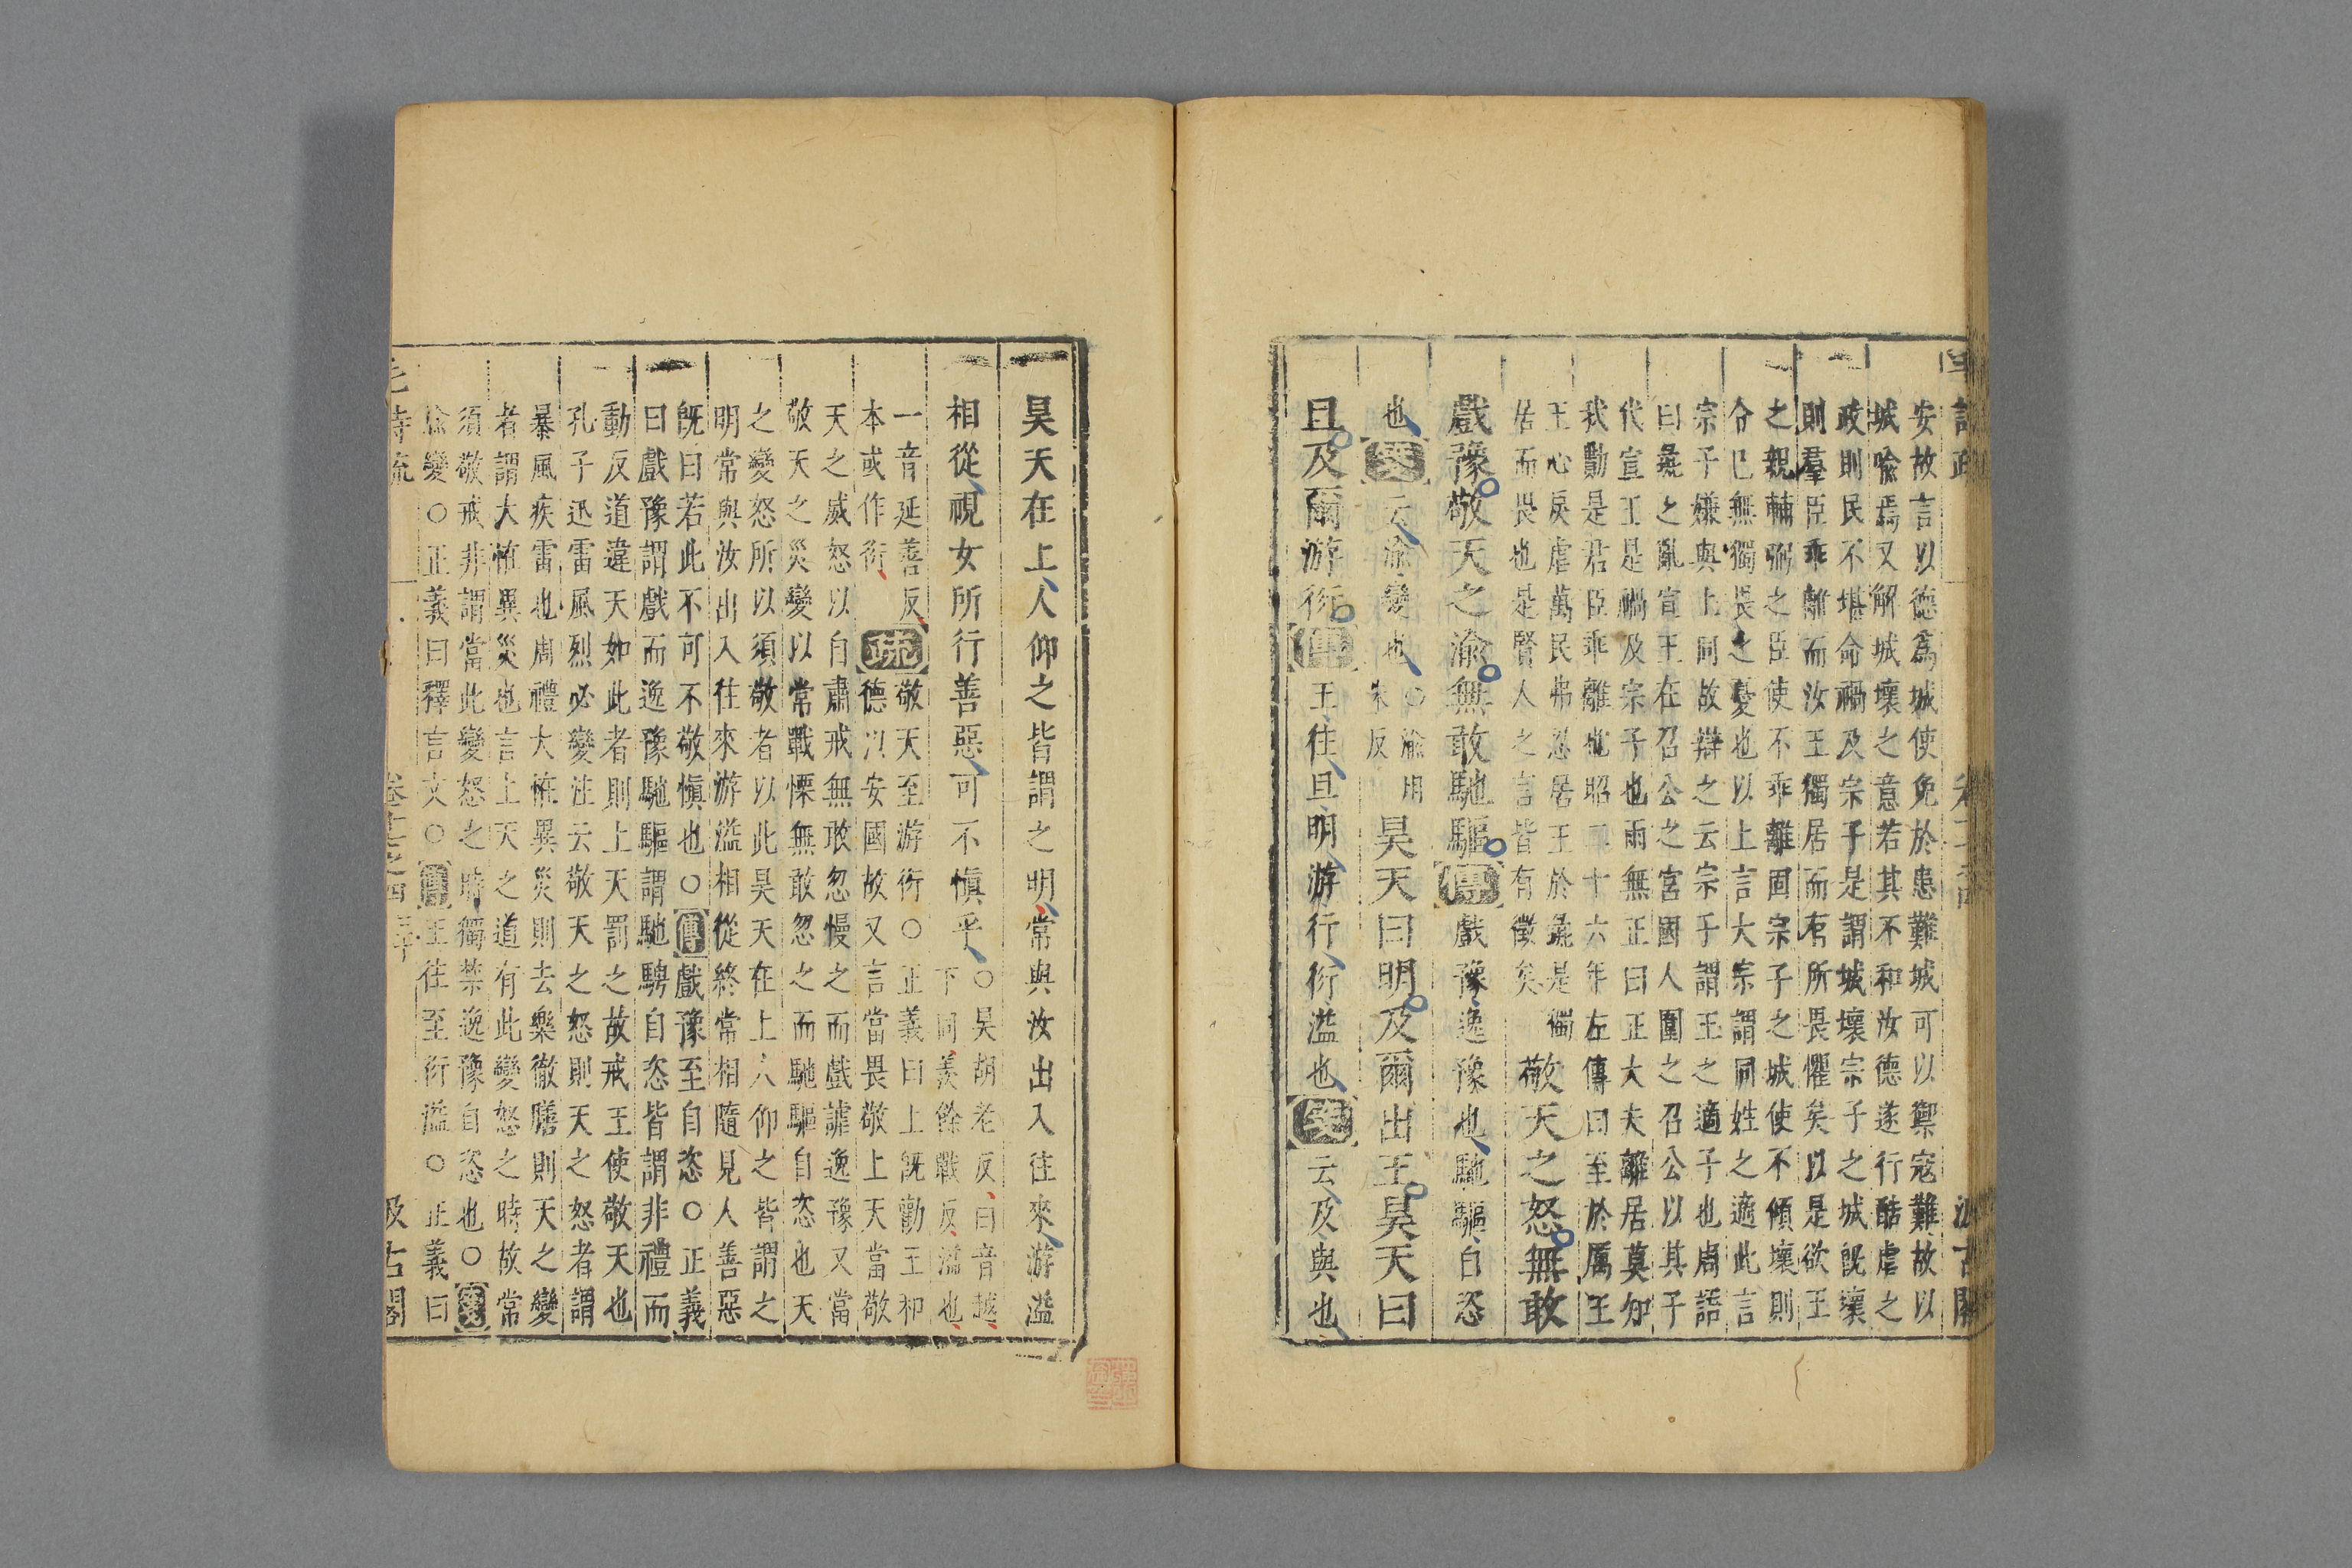 安故言以德爲城使免於患難城可以禦寇難故以
城喩焉又解城壞之意若其不和汝德遂行酷虐之
政則民不堪命禍及宗子是謂城壞宗子之城旣壞
則羣臣乖離而汝王獨居而有所畏懼矣以是欲王
之親輔弼之臣使不乖離固宗子之城使不傾壞則
令巳無獨畏之憂也以上言大宗謂同姓之適此言
宗子嫌與上同故辯之云宗子謂王之適子也周語
曰彘之亂宣王在召公之宮國人圍之召公以其子
代宣王是禍及宗子也雨無正曰正大夫離居莫知
我勩是君臣乖離也昭二十六年左傳曰至於厲王
王心戾虐萬民弗忍居王於彘是獨
居而畏也是賢人之言皆有徵矣
敬天之怒無敢
戲豫敬天之渝無敢馳驅傳戲豫逸豫也馳驅自恣
也箋云渝變也
○渝用
朱反
昊天曰明及爾出王昊天曰
旦及爾游衍傳王往旦明游行衍溢也箋云及與也
昊天在上人仰之皆謂之明常與汝出入往來游溢
相從視女所行善惡可不愼乎
○昊胡老反曰音越
下同羨餘戰反溢也
一音延善反
本或作衍
疏
敬天至游衍○正義曰上旣勸王和
德以安國故又言當畏敬上天當敬
天之威怒以自肅戒無敢忽慢之而戲謔逸豫又當
敬天之災變以常戰慄無敢忽之而馳驅自恣也天
之變怒所以須敬者以此昊天在上人仰之皆謂之
明常與汝出入往來游溢相從終常相隨見人善惡
旣曰若此不可不敬愼也○傳戲豫至自恣○正義
曰戲豫謂戲而逸豫馳驅謂馳騁自恣皆謂非禮而
動反道違天如此者則上天罰之故戒王使敬天也
孔子迅雷風烈必變注云敬天之怒則天之怒者謂
暴風疾雷也周禮大怪異災則去樂徹膳則天之變
者謂大怪異災也言上天之道有此變怒之時故常
須敬戒非謂當此變怒之時獨禁逸豫自恣也○箋
渝變○正義曰釋言文○傳王往至衍溢○正義曰